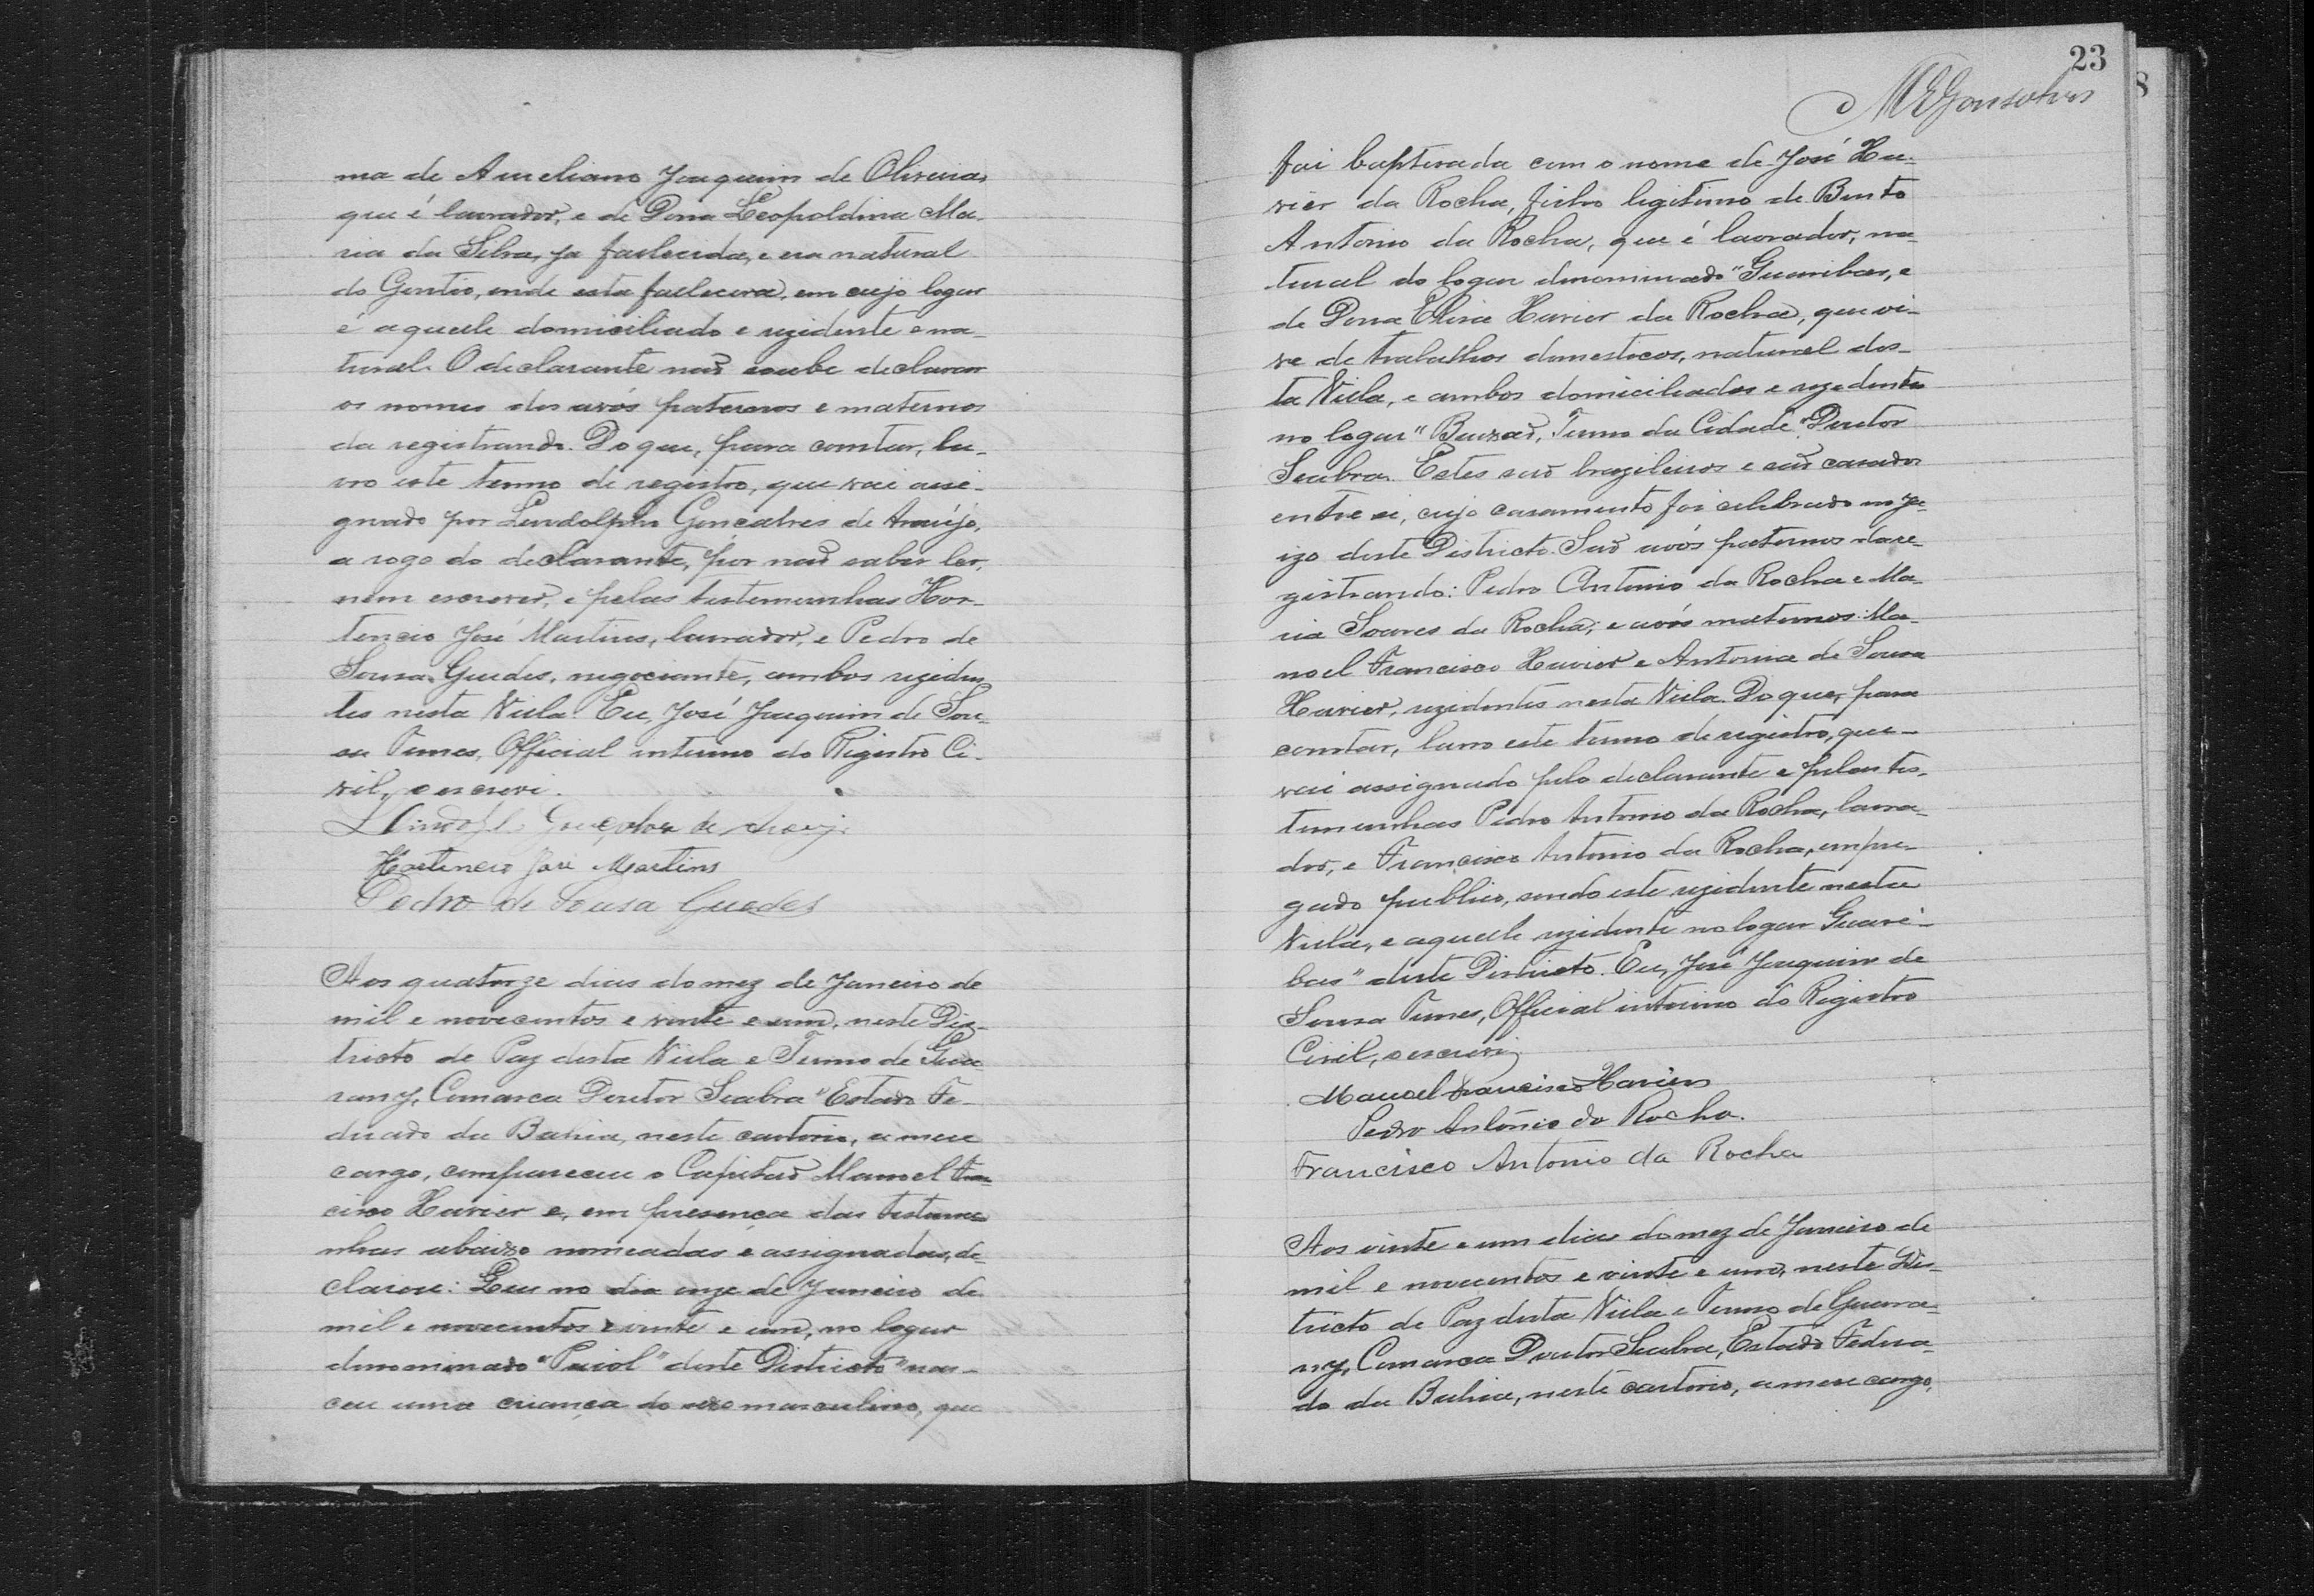 ma de Aureliano Joaquim de Oliveira,
que é lavrador, e de Dona Leopoldina Ma-
ria da Silva, ja fallecida, e era natural
do Gentio, onde esta fallecera, em cujo logar
é aquelle domiciliado e rezidente e na-
tural. O declarante não soube declarar
os nomes dos avós paternos e maternos
da registrando. Do que, para constar, la-
vro este termo de registro, que vai assi-
gnado por Lindolpho Gonçalves de Araújo,
a rogo do declarante, por não saber ler,
nem escrever, e pelas testemunhas Hor-
tencio José Martins, lavrador, e Pedro de
Sousa Guedes, negociante, ambos reziden-
tes nesta Villa. Eu, José Joaquim de Sou-
sa Official interino do Registro Ci-
vil, o escrevi.
Gonçalves de
Hortencio José Martins
Pedro de Sousa Guedes
Aos quatorze dias do mez de Janeiro de
mil e novecentos e vinte e um, neste Dis-
tricto de Paz desta Villa e Termo de Gua-
rany, Comarca Doutor Seabra" Estado Fe-
derado da Bahia, neste cartorio, a meu
cargo, compareceu o Capitão Manoel Fran-
cisco Xavier e, em presença das testemu-
nhas abaixo nomeadas e assignadas, de-
clarou: Que no dia onze de Janeiro de
mil e novecentos e vinte e um, no logar
denominado "Paiol" deste Districto "nas-
ceu uma criança do sexo masculino, que
23
MEGonsalves
foi baptisada com o nome de José Xa-
vier da Rocha, filho legitimo de Bento
Antonio da Rocha, que é lavrador, na-
tural do logar denominado "Guaribas, e
de Dona Elisa Xavier da Rocha, que vi-
ve de trabalhos domesticos, natural des-
ta Villa, e ambos domiciliados e rezidentes
no logar " Termo da Cidade "Doutor
Seabra. Estes são brazileiros e são casados
entre si, cujo casamento foi celebrado no Ju-
izo deste Districto. São avós paternos do re-
gistrando: Pedro Antonio da Rocha e Ma-
ria Soares da Rocha; e avós maternos: Ma-
noel Francisco Xavier e Antonia de Sousa
Xavier, rezidentes nesta Villa. Do que, para
constar, lavro este termo de registro, que
vai assignado pelo declarante e pelas tes-
temunhas Pedro Antonio da Rocha, lavra-
dor, e Francisco Antonio da Rocha, empre-
gado publico, sendo este rezidente nesta
Villa, e aquelle rezidente no logar Guari-
bas" deste Districto. Eu, José Joaquim de
Sousa Official interino do Registro
Civil, o escrevi
Manoel Francisco Xavier
Pedro Antonio da Rocha.
Francisco Antonio da Rocha
Aos vinte e um dias do mez de Janeiro de
mil e novecentos e vinte e um, neste Dis-
tricto de Paz desta Villa e Termo de Guara-
ny, Comarca Doutor Seabra, Estado Federa-
do da Bahia, neste cartorio, a meu cargo,